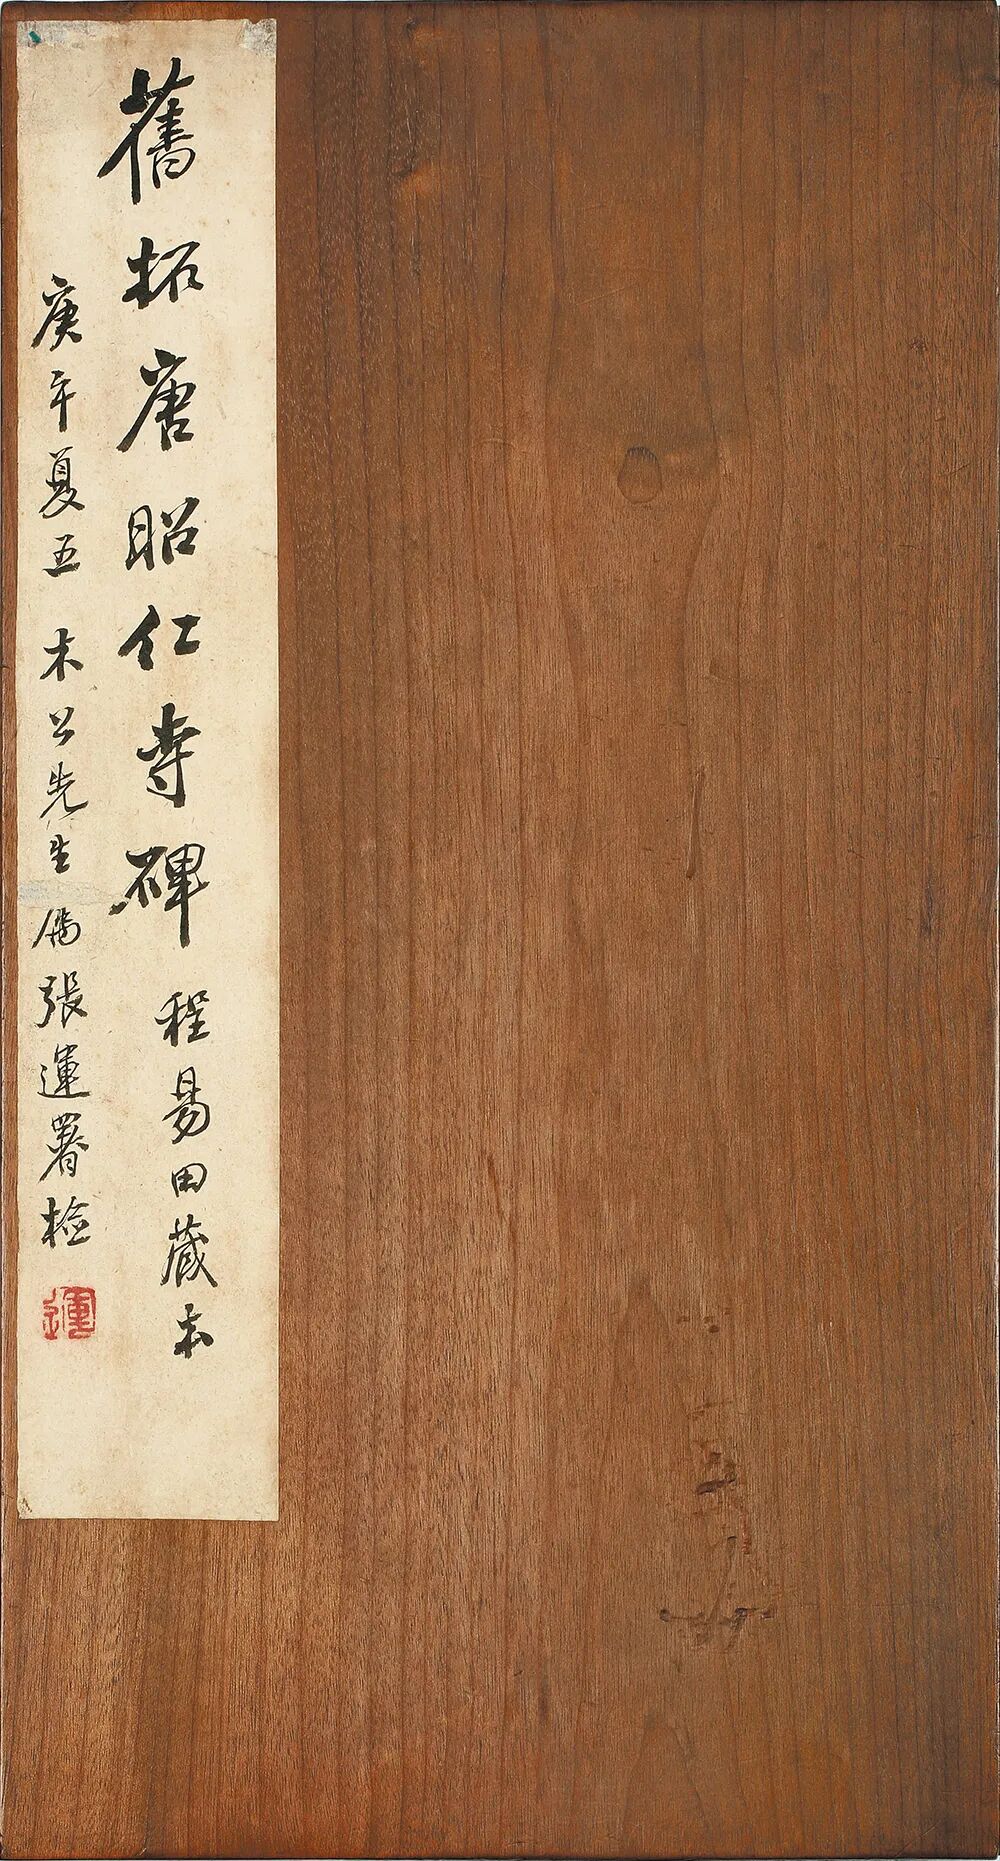 舊拓唐昭仁寺碑 程易田藏本
庚午夏五 木公先生属 張運署檢
運